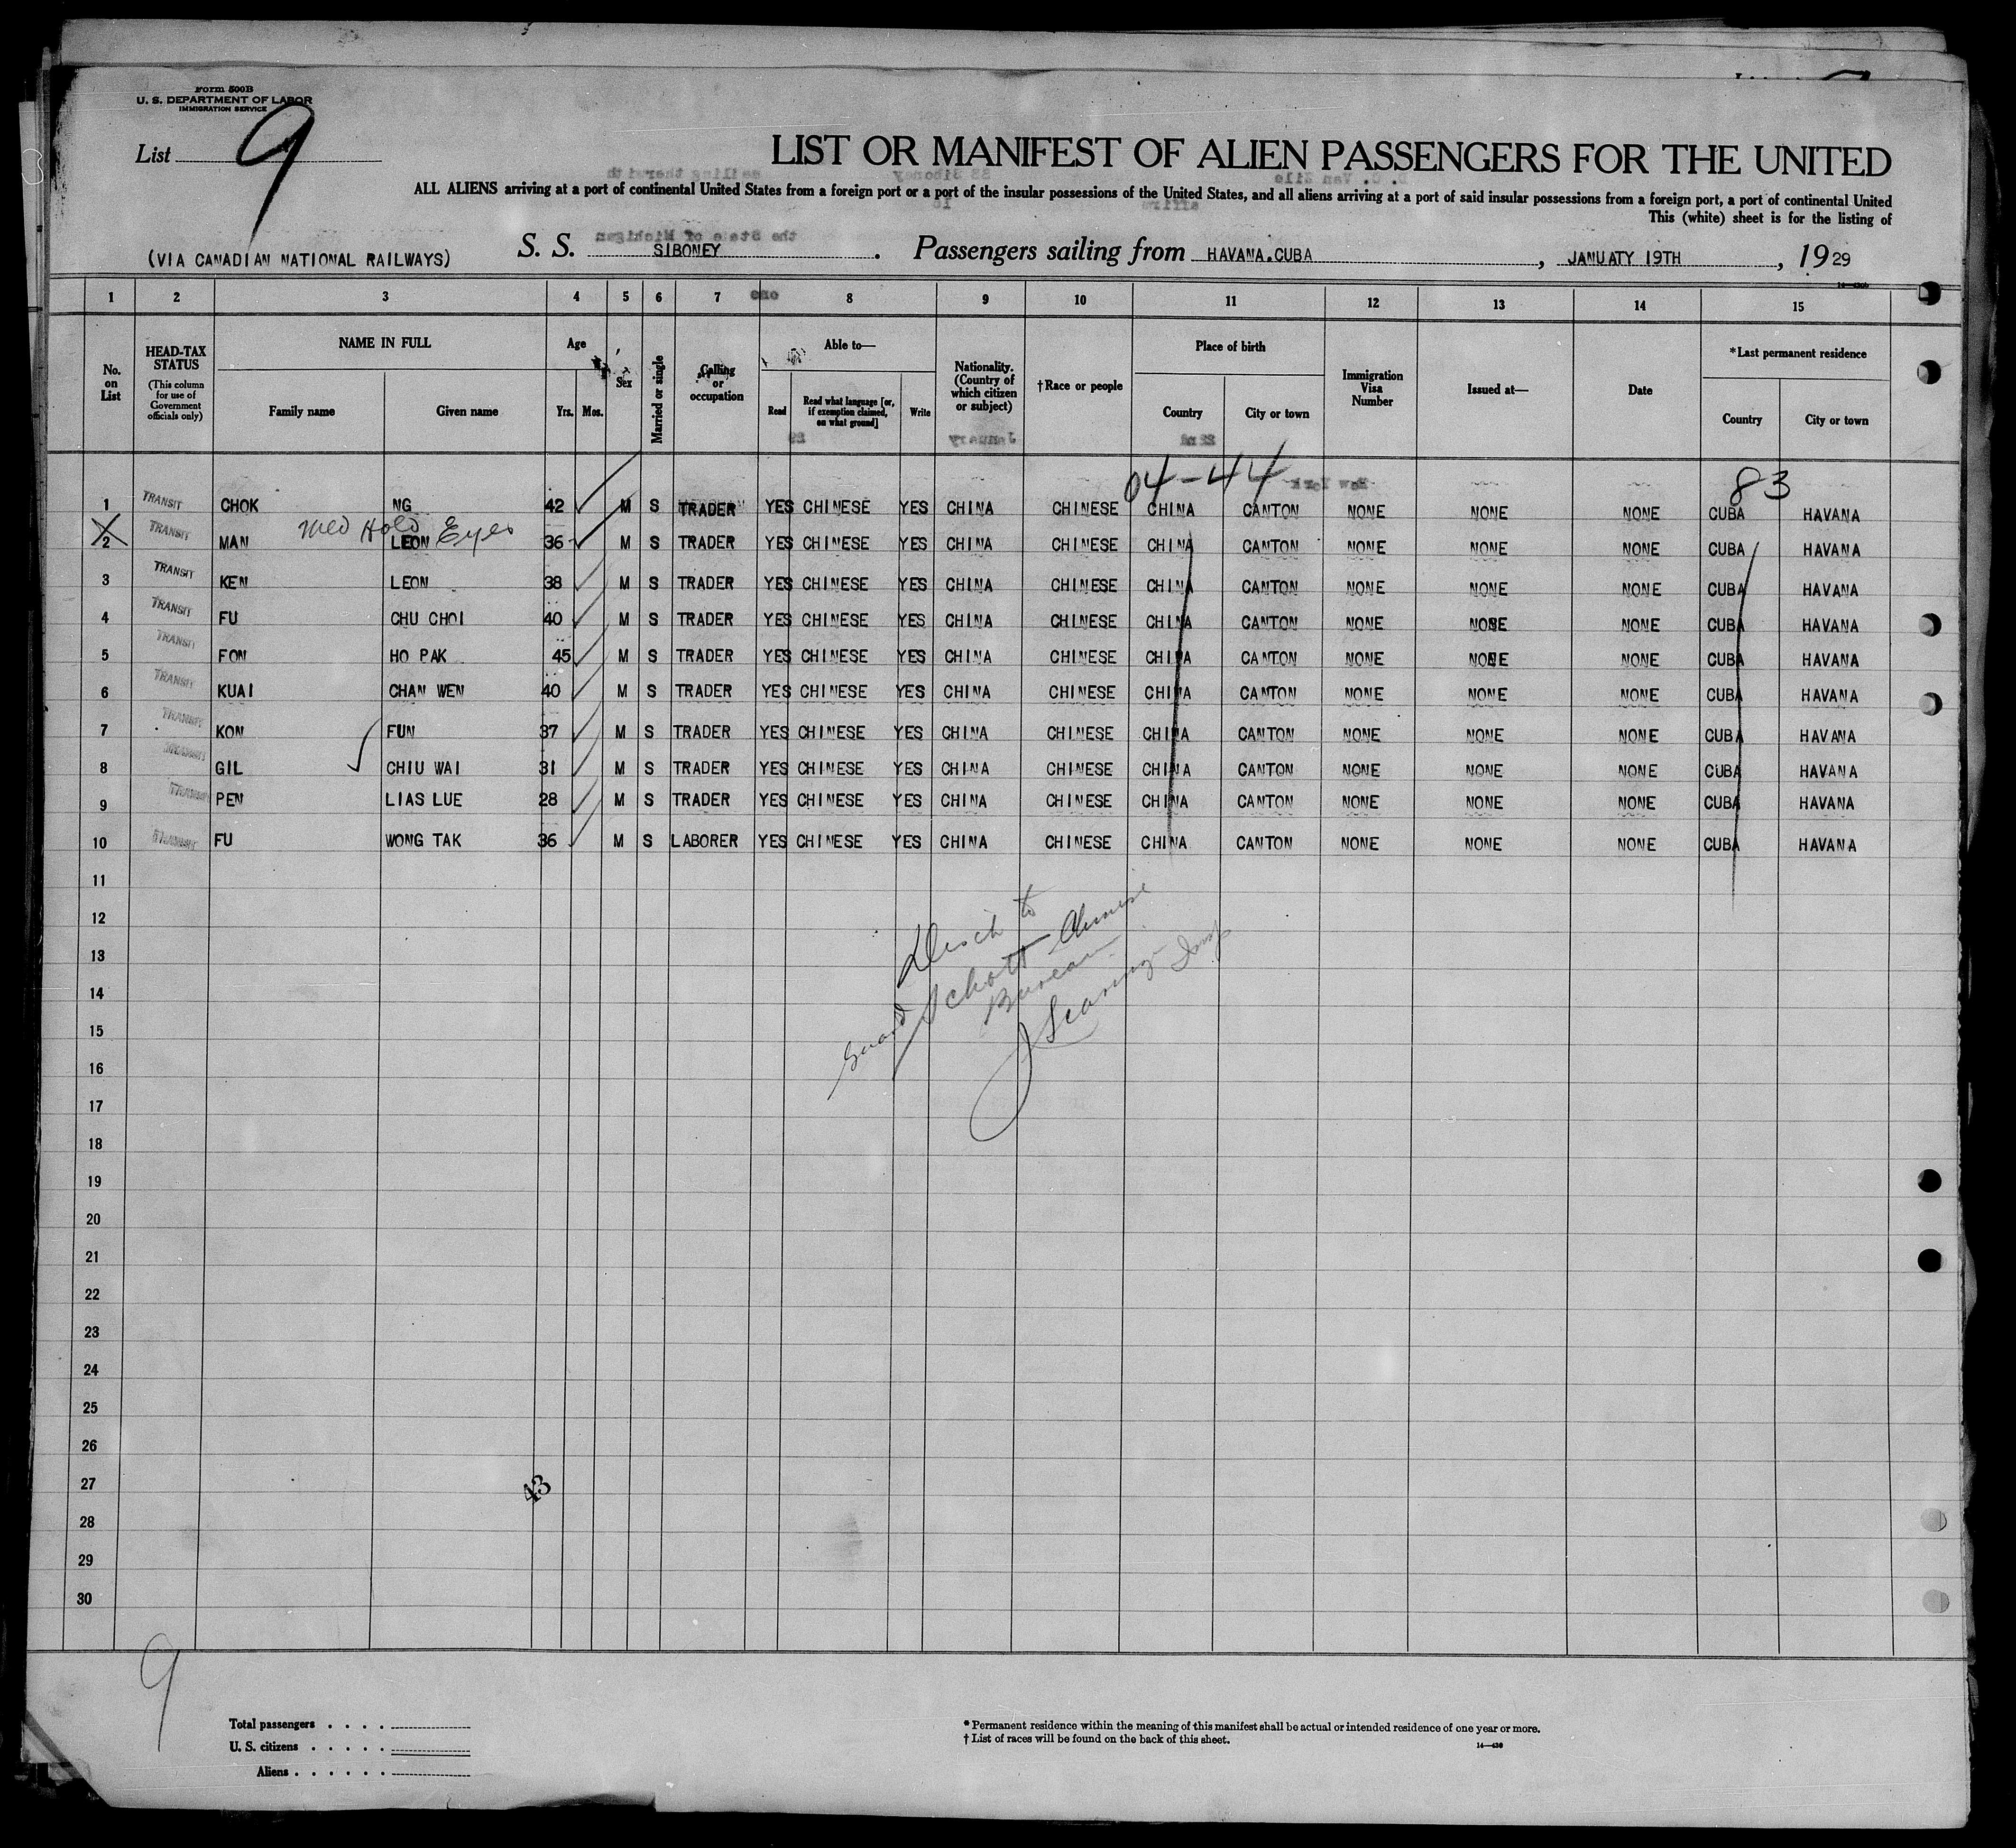 Form 500B
U. S. DEPARTMENT OF LABOR
IMMIGRATION SERVICE
List 9
LIST OR MANIFEST OF ALIEN PASSENGERS FOR THE UNITED
ALL ALIENS arriving at a port of continental United States from a foreign port or a port of the insular possessions of the United States, and all aliens arriving at a port of said insular possessions from a foreign port, a port of continental United
This (white) sheet is for the listing of
(VIA CANADIAN NATIONAL RAILWAYS) S. S. SIBONEY. Passengers sailing from HAVANA.CUBA, JANUATY 19TH, 1929
1 2 3 4 5 6 7 8 9 10 11 12 13 14 15
No. on List
HEAD-TAX STATUS
(This column for use of Government officials only)
NAME IN FULL
Family name Given name
Age
Yrs. Mos.
Sex
Married or single
Calling or occupation
Able to—
Read
Read what language [or, if exemption claimed, on what ground]
Write
Nationality. (Country of which citizen or subject)
†Race or people
Place of birth
Country City or town
Immigration Visa Number
Issued at—
Date
*Last permanent residence
Country City or town
04-44 83
1 TRANSIT CHOK NG 42 M S TRADER YES CHINESE YES CHINA CHINESE CHINA CANTON NONE NONE NONE CUBA HAVANA
Med Hold Eyes
2 TRANSIT MAN LEON 36 M S TRADER YES CHINESE YES CHINA CHINESE CHINA CANTON NONE NONE NONE CUBA HAVANA
3 TRANSIT KEN LEON 38 M S TRADER YES CHINESE YES CHINA CHINESE CHINA CANTON NONE NONE NONE CUBA HAVANA
4 TRANSIT FU CHU CHOI 40 M S TRADER YES CHINESE YES CHINA CHINESE CHINA CANTON NONE NONE NONE CUBA HAVANA
5 TRANSIT FON HO PAK 45 M S TRADER YES CHINESE YES CHINA CHINESE CHINA CANTON NONE NONE NONE CUBA HAVANA
6 TRANSIT KUAI CHAN WEN 40 M S TRADER YES CHINESE YES CHINA CHINESE CHINA CANTON NONE NONE NONE CUBA HAVANA
7 TRANSIT KON FUN 37 M S TRADER YES CHINESE YES CHINA CHINESE CHINA CANTON NONE NONE NONE CUBA HAVANA
8 TRANSIT GIL CHIU WAI 31 M S TRADER YES CHINESE YES CHINA CHINESE CHINA CANTON NONE NONE NONE CUBA HAVANA
9 TRANSIT PEN LIAS LUE 28 M S TRADER YES CHINESE YES CHINA CHINESE CHINA CANTON NONE NONE NONE CUBA HAVANA
10 TRANSIT FU WONG TAK 36 M S LABORER YES CHINESE YES CHINA CHINESE CHINA CANTON NONE NONE NONE CUBA HAVANA
11
12
13
14
15
16
17
18
19
20
21
22
23
24
25
26
27
28
29
30
Disch to
Guard Schott Chinese
Bureau
43
9
Total passengers
U. S. citizens
Aliens
* Permanent residence within the meaning of this manifest shall be actual or intended residence of one year or more.
† List of races will be found on the back of this sheet.
14—430